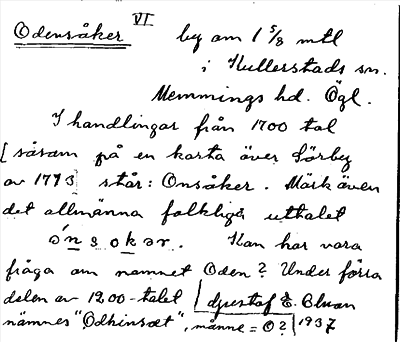 VI
Odensåker by om 1 5/8 mtl
i Kullerstads sn.
Memmings hd. Ögl.
I handlingar från 1700 tal
[såsom på en karta över Lörby
av 1773] står: Onsåker. Märk även
det allmänna folkliga uttalet
ónsokər. Kan här vara
fråga om namnet Oden? Under förra
delen av 1200-talet
nämnes "Odhinsæt", månne = O?
Gustaf E. Olson
1937